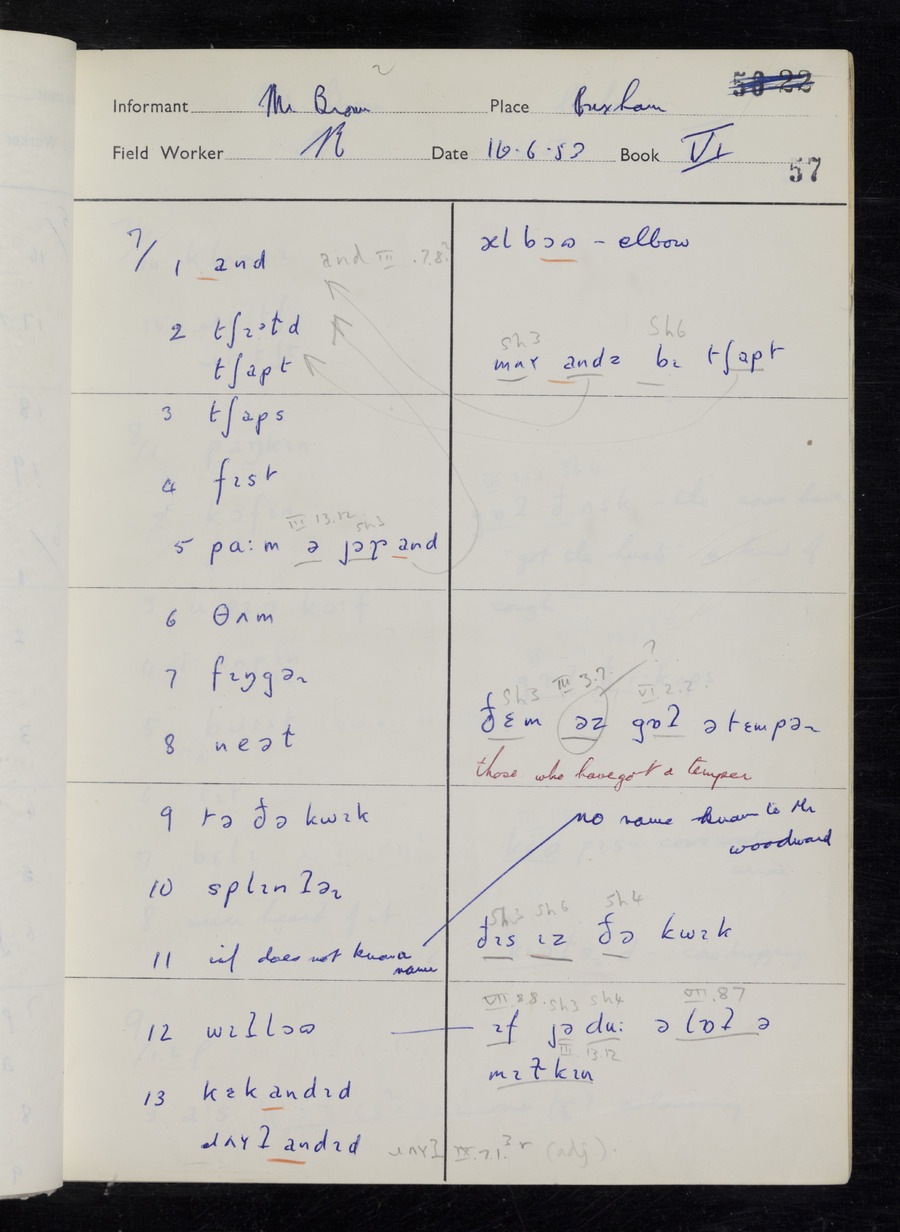 50 22
Informant Mr Brown Place Brixham
Field Worker Date 16.6.53 Book VI
57
7/ 1 and and III .7.8
ɛlbɔʊ - elbow
2 tʃɪətd
tʃapt
sh3 sh6
mʌɪ andz bɪ tʃapt
3 tʃaps
4 fɪst
III 13.12 sh3
5 pa:m ə jəɽ and
6 θʌm
7 fɪŋgəɹ
8 neət
sh3 III 3.7. ? VI.2.2.
ðɛm əz gɒʔ ə tɛmpəɹ
those who have got a temper
9 tə ðə kwɪk
10 splɪnʔəɹ
11 inf does not know a
name
no name known to Mr
Woodward
sh3 sh6 sh4
ðɪs ɪz ðə kwɪk
12 wɪʔlɔʊ
VII.8.8. sh3 sh4 VII.87
ɪf jə du: ə lɒʔ ə
III 13.12
mɪɫkɪn
13 kɛkandɪd
ɹʌɪʔandɪd ɹʌɪʔ IX.7.1. (adj).